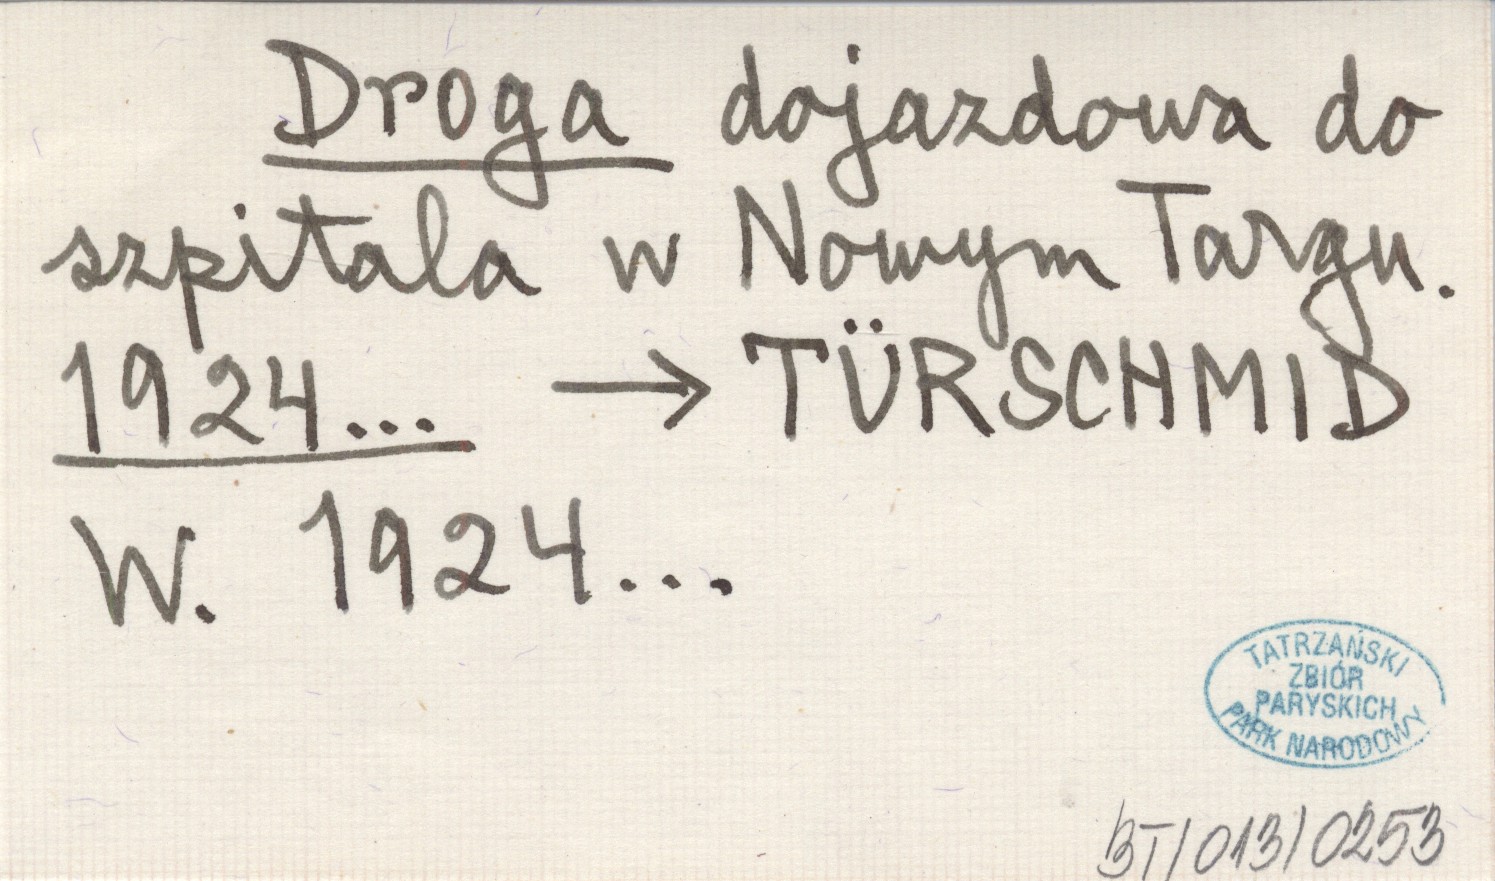 Droga dojazdowa do
szpitala w Nowym Targu.
1924... → TÜRSCHMID
W. 1924...
TATRZAŃSKI
ZBIÓR
PARYSKICH
PARK NARODOWY
BT/013/0253